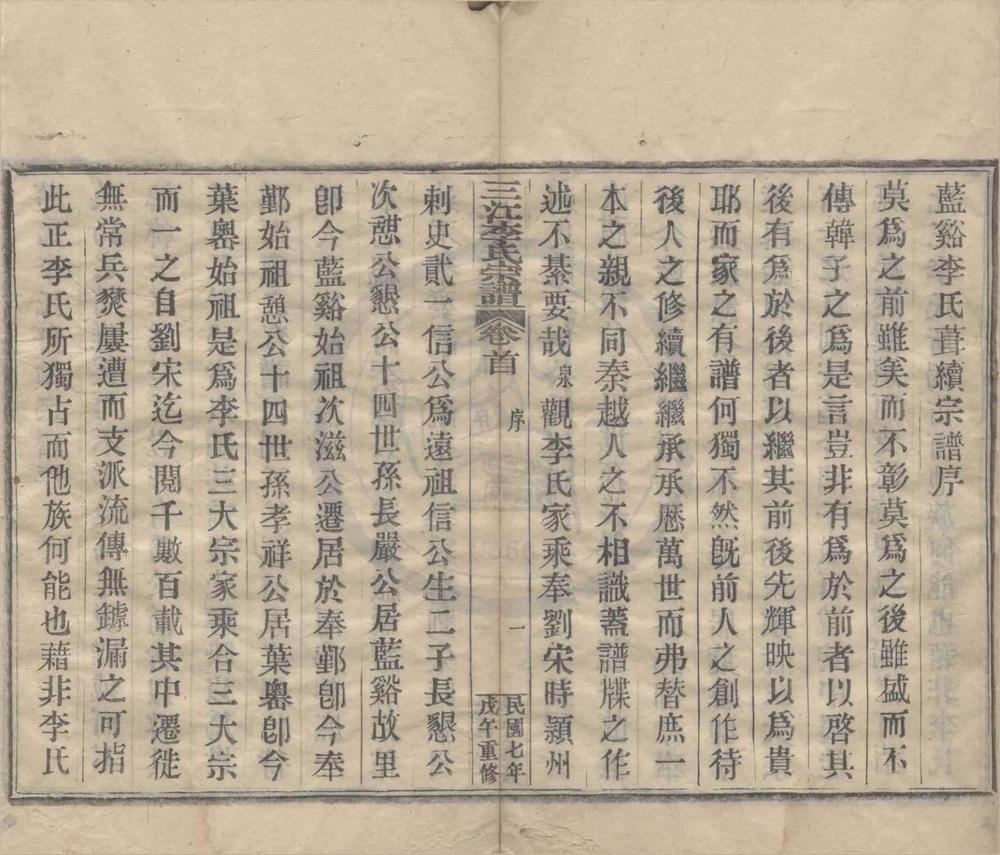 藍谿李氏葺續宗譜序
莫爲之前雖美而不彰莫爲之後雖盛而不
傳韓子之爲是言豈非有爲於前者以啓其
後有爲於後者以繼其前後先輝映以爲貴
耶而家之有譜何獨不然旣前人之創作待
後人之修續繼繼承承歷萬世而弗替庶一
本之親不同秦越人之不相識蓋譜牒之作
述不綦要哉泉觀李氏家乘奉劉宋時潁州
三江李氏宗譜 卷首 序 一 民國七年戊午重修
刺史貳一信公爲遠祖信公生二子長懇公
次憇公懇公十四世孫長嚴公居藍谿故里
卽今藍谿始祖次滋公遷居於奉鄞卽今奉
鄞始祖憩公十四世孫孝祥公居葉嶴卽今
葉嶴始祖是爲李氏三大宗家乘合三大宗
而一之自劉宋迄今閱千數百載其中遷徙
無常兵燹屢遭而支派流傳無罅漏之可指
此正李氏所獨占而他族何能也藉非李氏